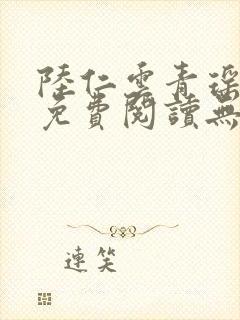 陸仁雲青瑤
免費閱讀無
連笑